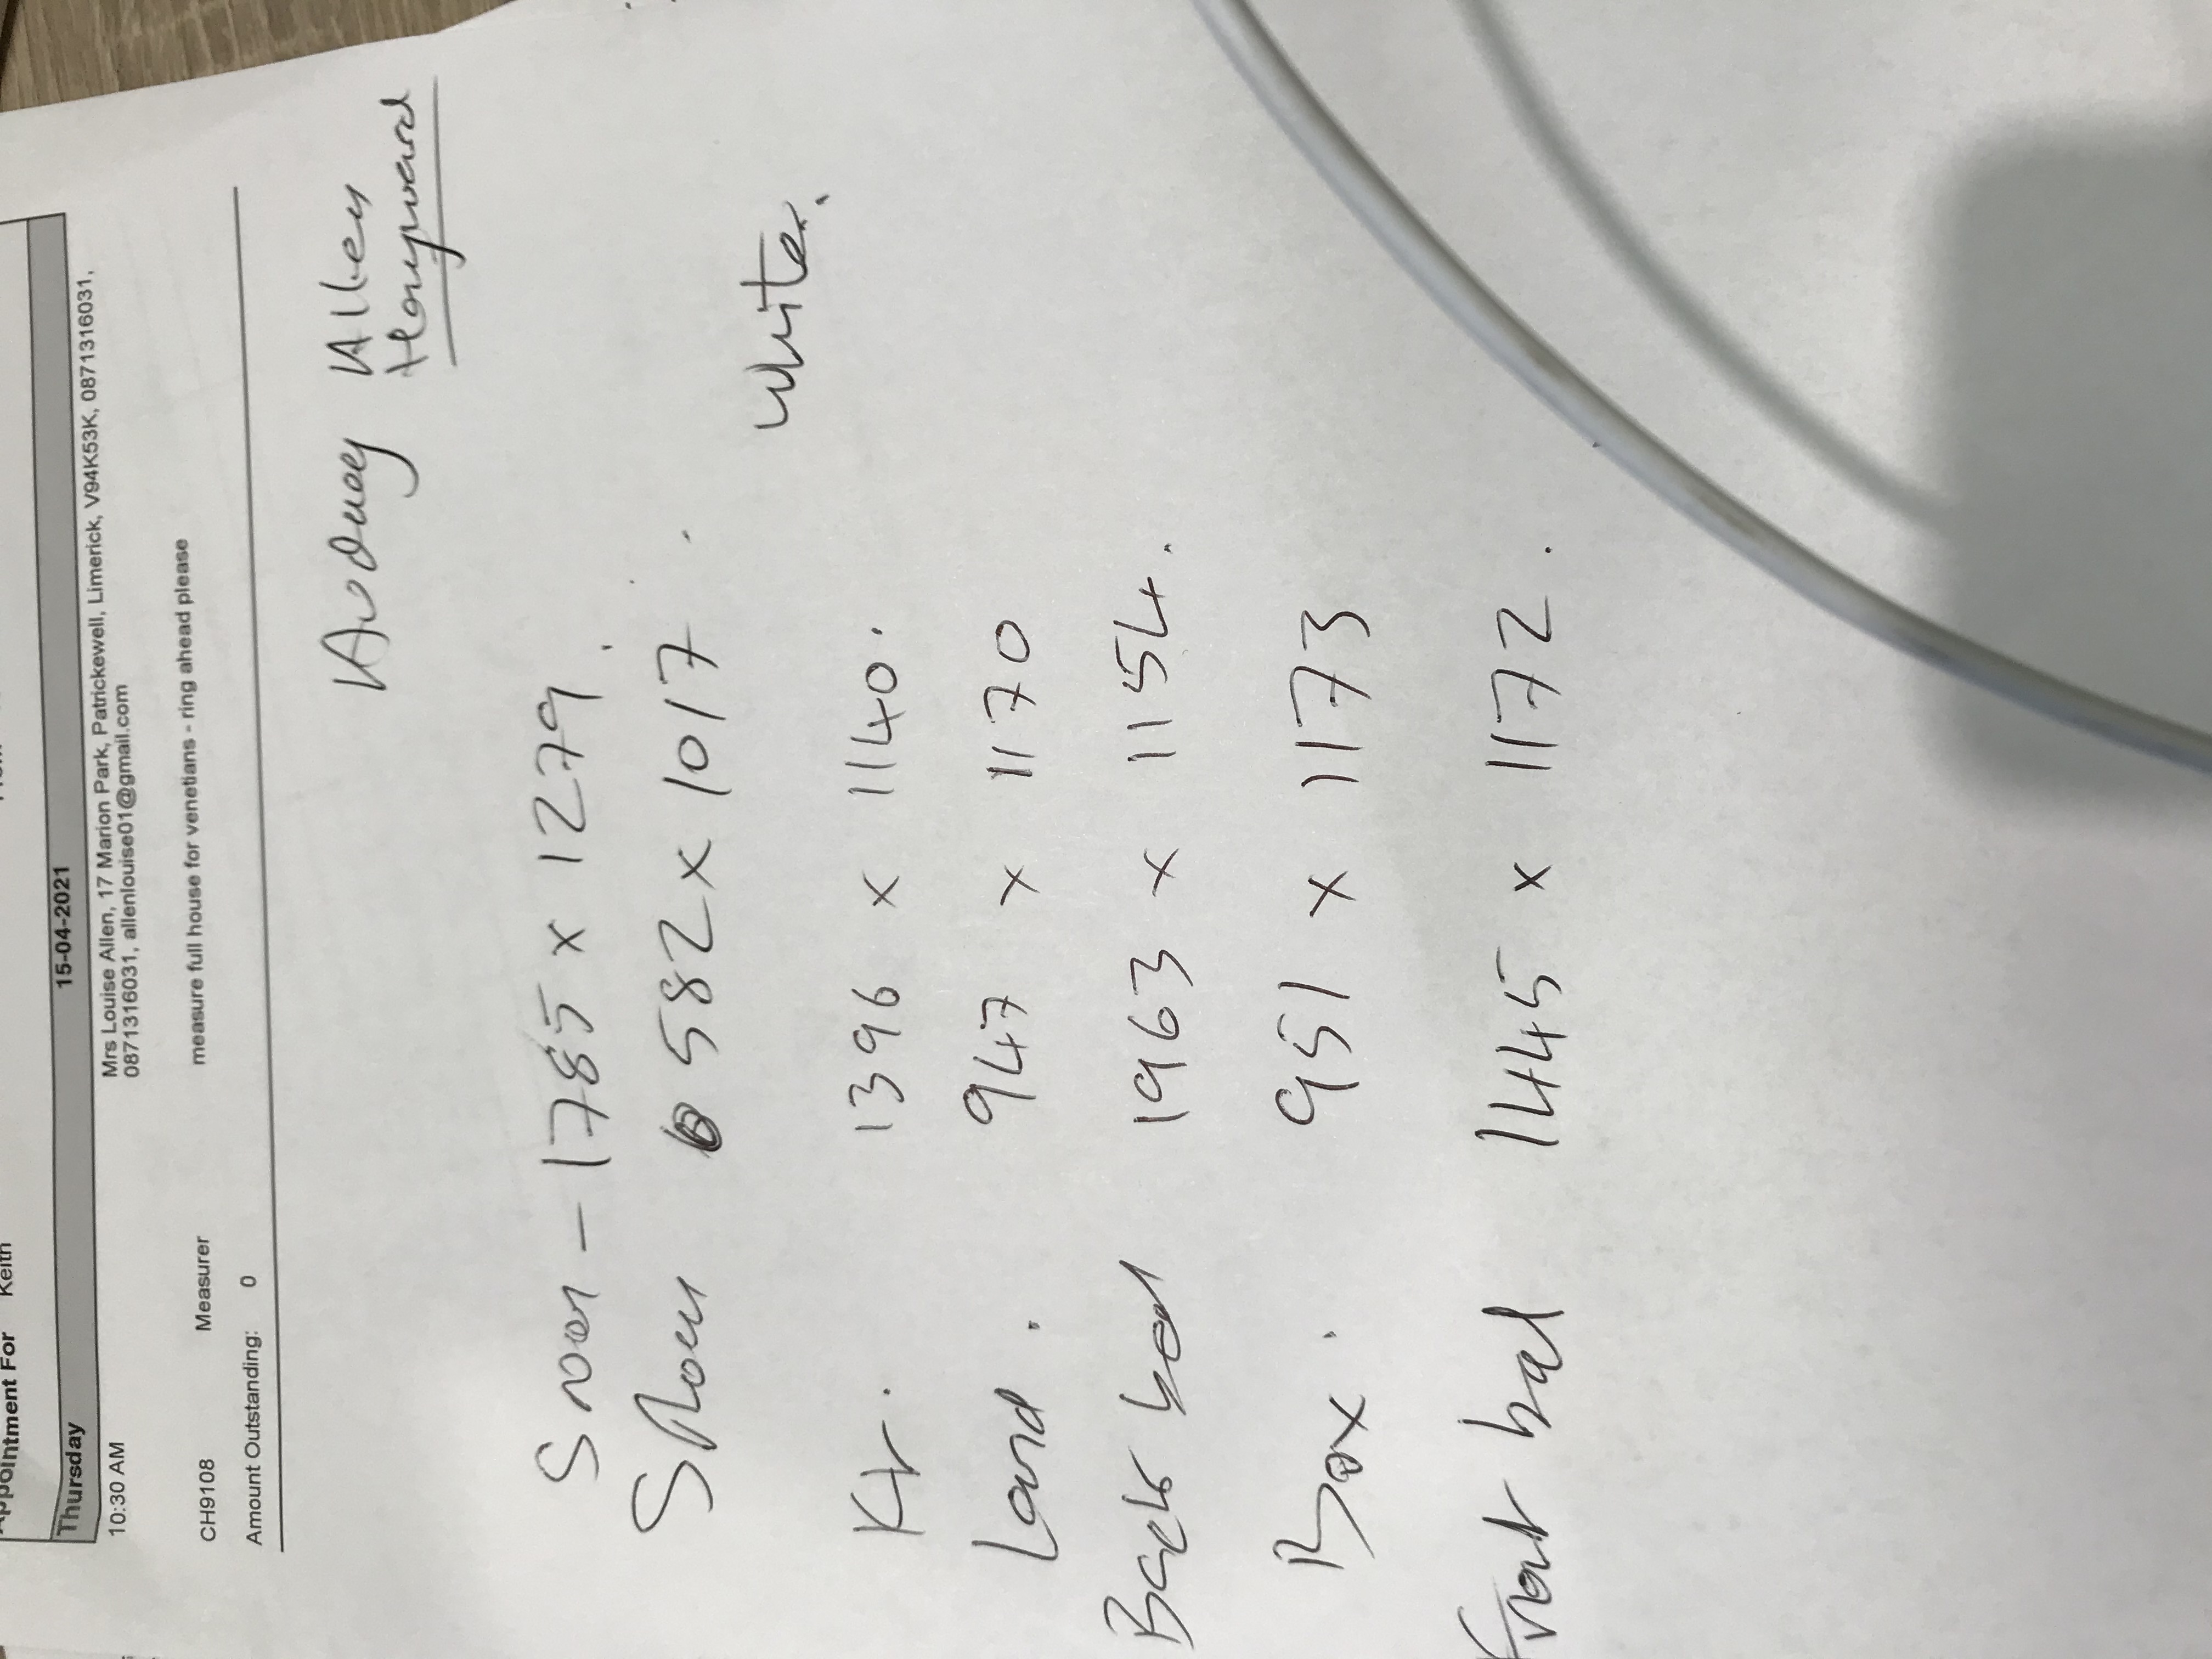 Appointment For Keith
Thursday 15-04-2021
10:30 AM Mrs Louise Allen, 17 Marion Park, Patrickewell, Limerick, V94K53K, 0871316031,
0871316031, allenlouise01@gmail.com
CH9108 Measurer measure full house for venetians - ring ahead please
Amount Outstanding: 0
S room - 1785 x 1279.
582 x 1017.
White.
Kt. 1396 x 1140.
Land. 947 x 1170
Back bed 1963 x 1154.
Box. 951 x 1173
Front bed 1445 x 1172.